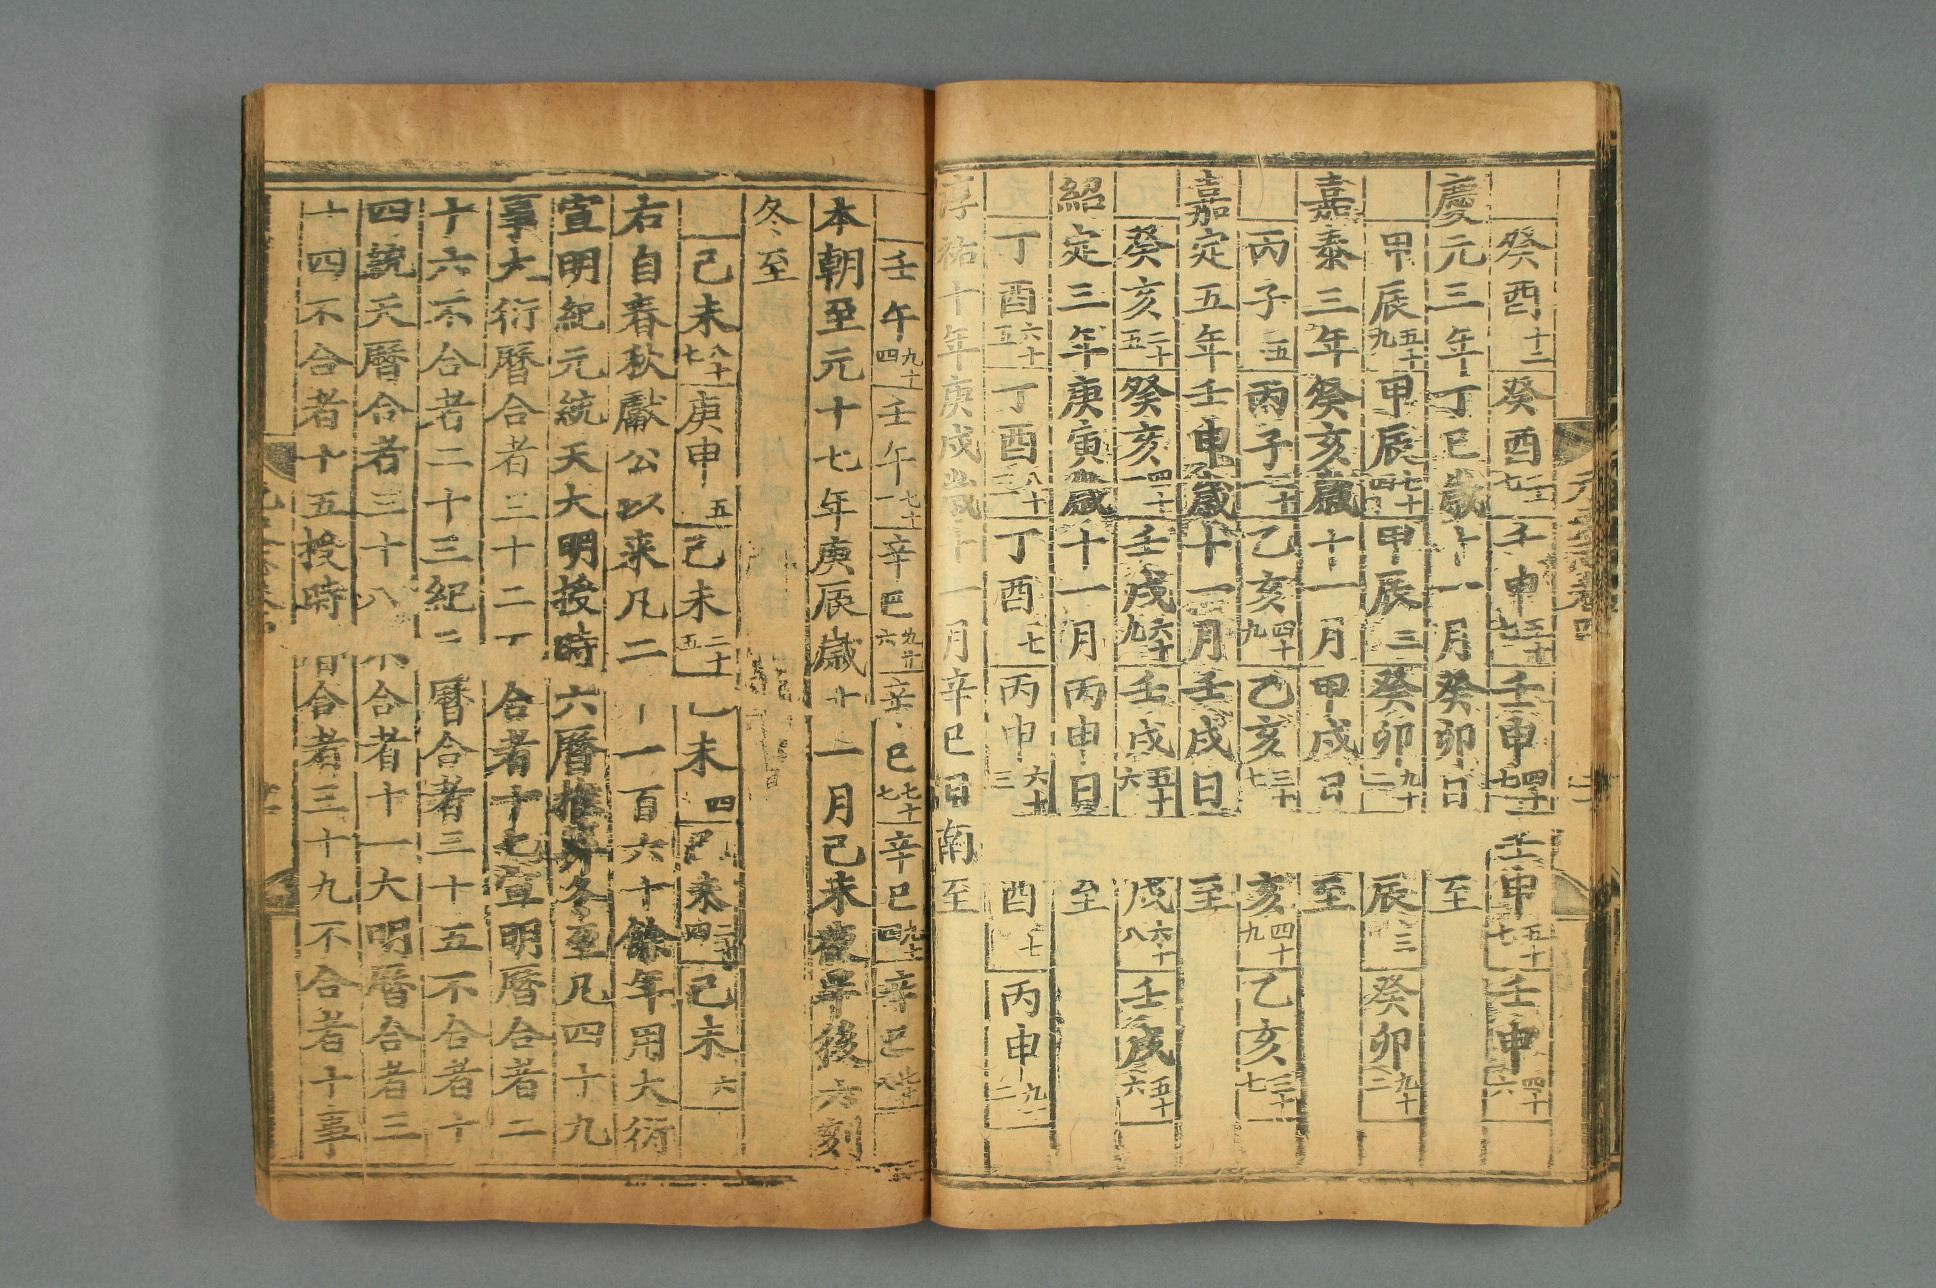 癸酉十二 癸酉 壬申 壬申四十七 壬申五十七 壬申四十六
慶元三年丁巳歲十一月癸卯日 至
甲辰五十九 甲辰七十四 甲辰三 癸卯九十二 辰三 癸卯九十二
嘉泰三年癸亥歲十一月甲戌日 至
丙子五 丙子二十 乙亥四十九 乙亥三十七 亥四十九 乙亥三十七
嘉定五年壬申歲十一月壬戌日 至
癸亥二十五 癸亥四十一 壬戌六十九 壬戌五十六 戌六十八 壬戌五十六
紹定三年庚寅歲十一月丙申日 至
丁酉六十五 丁酉八十三 丁酉七 丙申六十三 酉七 丙申九十二
淳祐十年庚戌歲十一月辛巳日南至
壬午九十四 壬午七十一 辛巳九十六 辛巳七十七 辛巳九十四 辛巳七十八
本朝至元十七年庚辰歲十一月己未夜半後六刻
冬至
己未八十七 庚申五 己未二十五 己未四 己未二十四 己未六
右自春秋獻公以來凡二 一百六十餘年用大衍
宣明紀元統天大明授時六曆推筭冬至凡四十九
事大衍曆合者三十二不合者十七宣明曆合者二
十六不合者二十三紀 曆合者三十五不合者十
四統天曆合者三十八不合者十一大明曆合者三
十四不合者十五授時 合者三十九不合者十事